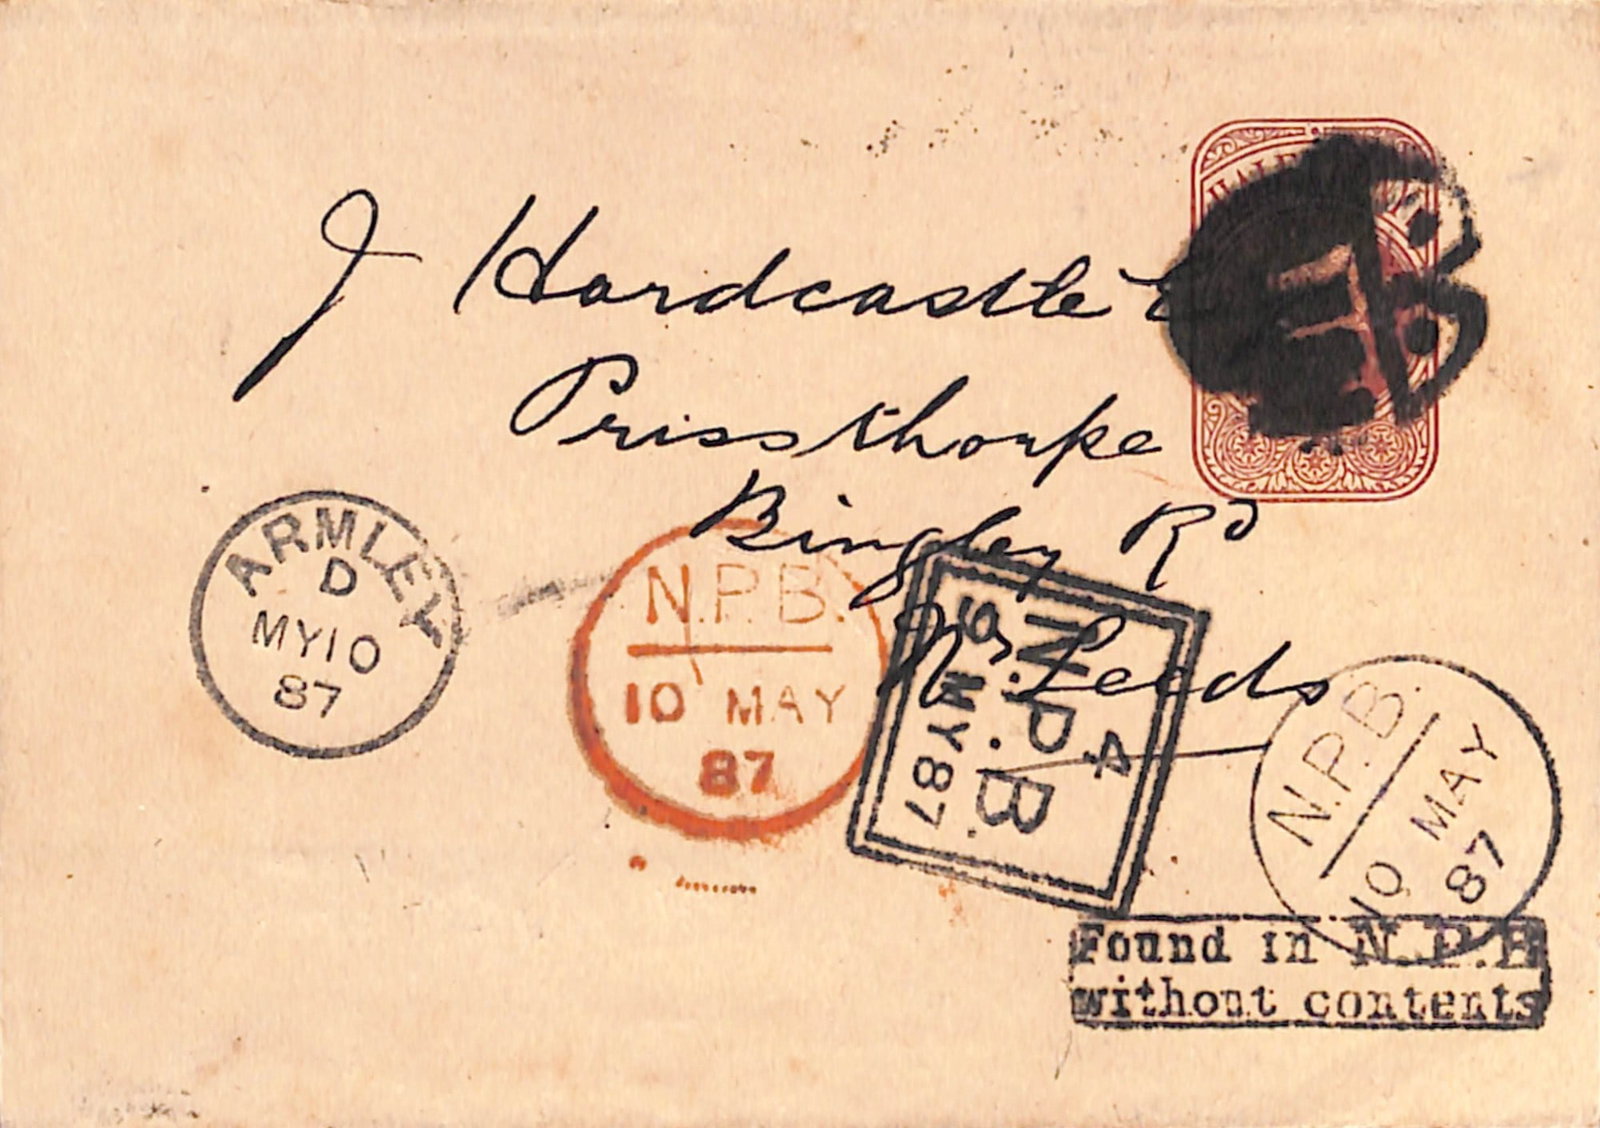 HALF
J Hardcastle
Prissthorpe
Bingley Rd
Nr Leeds
ARMLEY
D
MY10
87
N.P.B.
10 MAY
87
4
N.P.B.
9 MY87
N.P.B.
10 MAY
87
Found in N.P.B
without contents